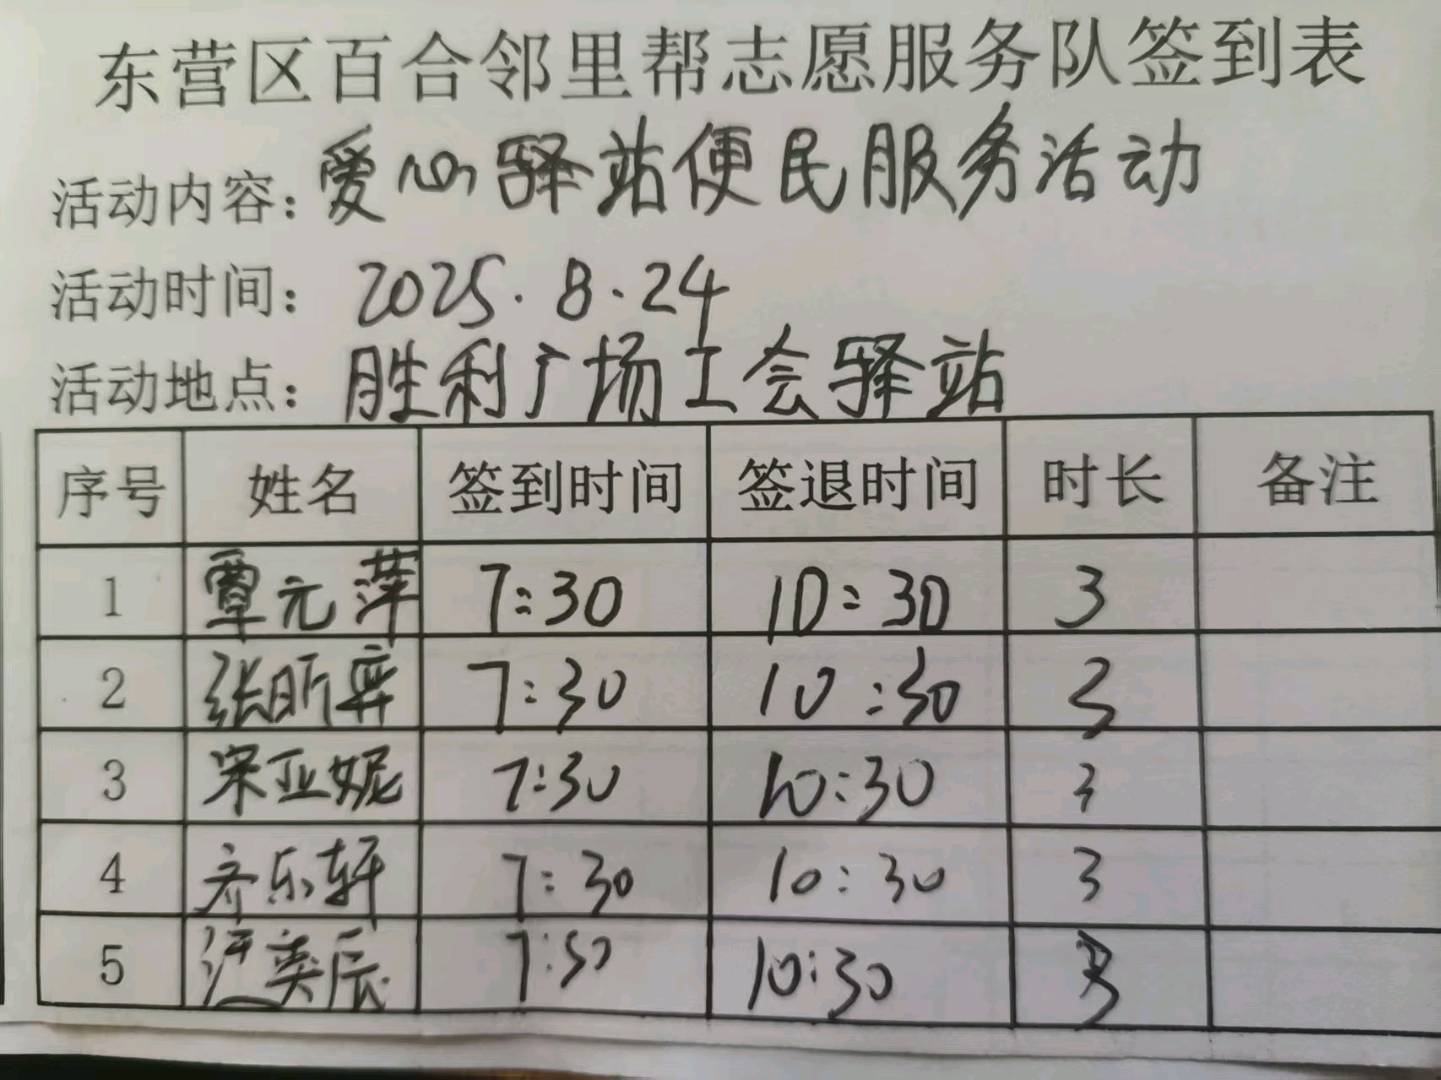 东营区百合邻里帮志愿服务队签到表
活动内容：爱心驿站便民服务活动
活动时间：2025.8.24
活动地点：胜利广场工会驿站
序号 姓名 签到时间 签退时间 时长 备注
1 覃元萍 7:30 10:30 3
2 张昕弈 7:30 10:30 3
3 宋亚妮 7:30 10:30 3
4 齐乐轩 7:30 10:30 3
5 奕辰 10:30